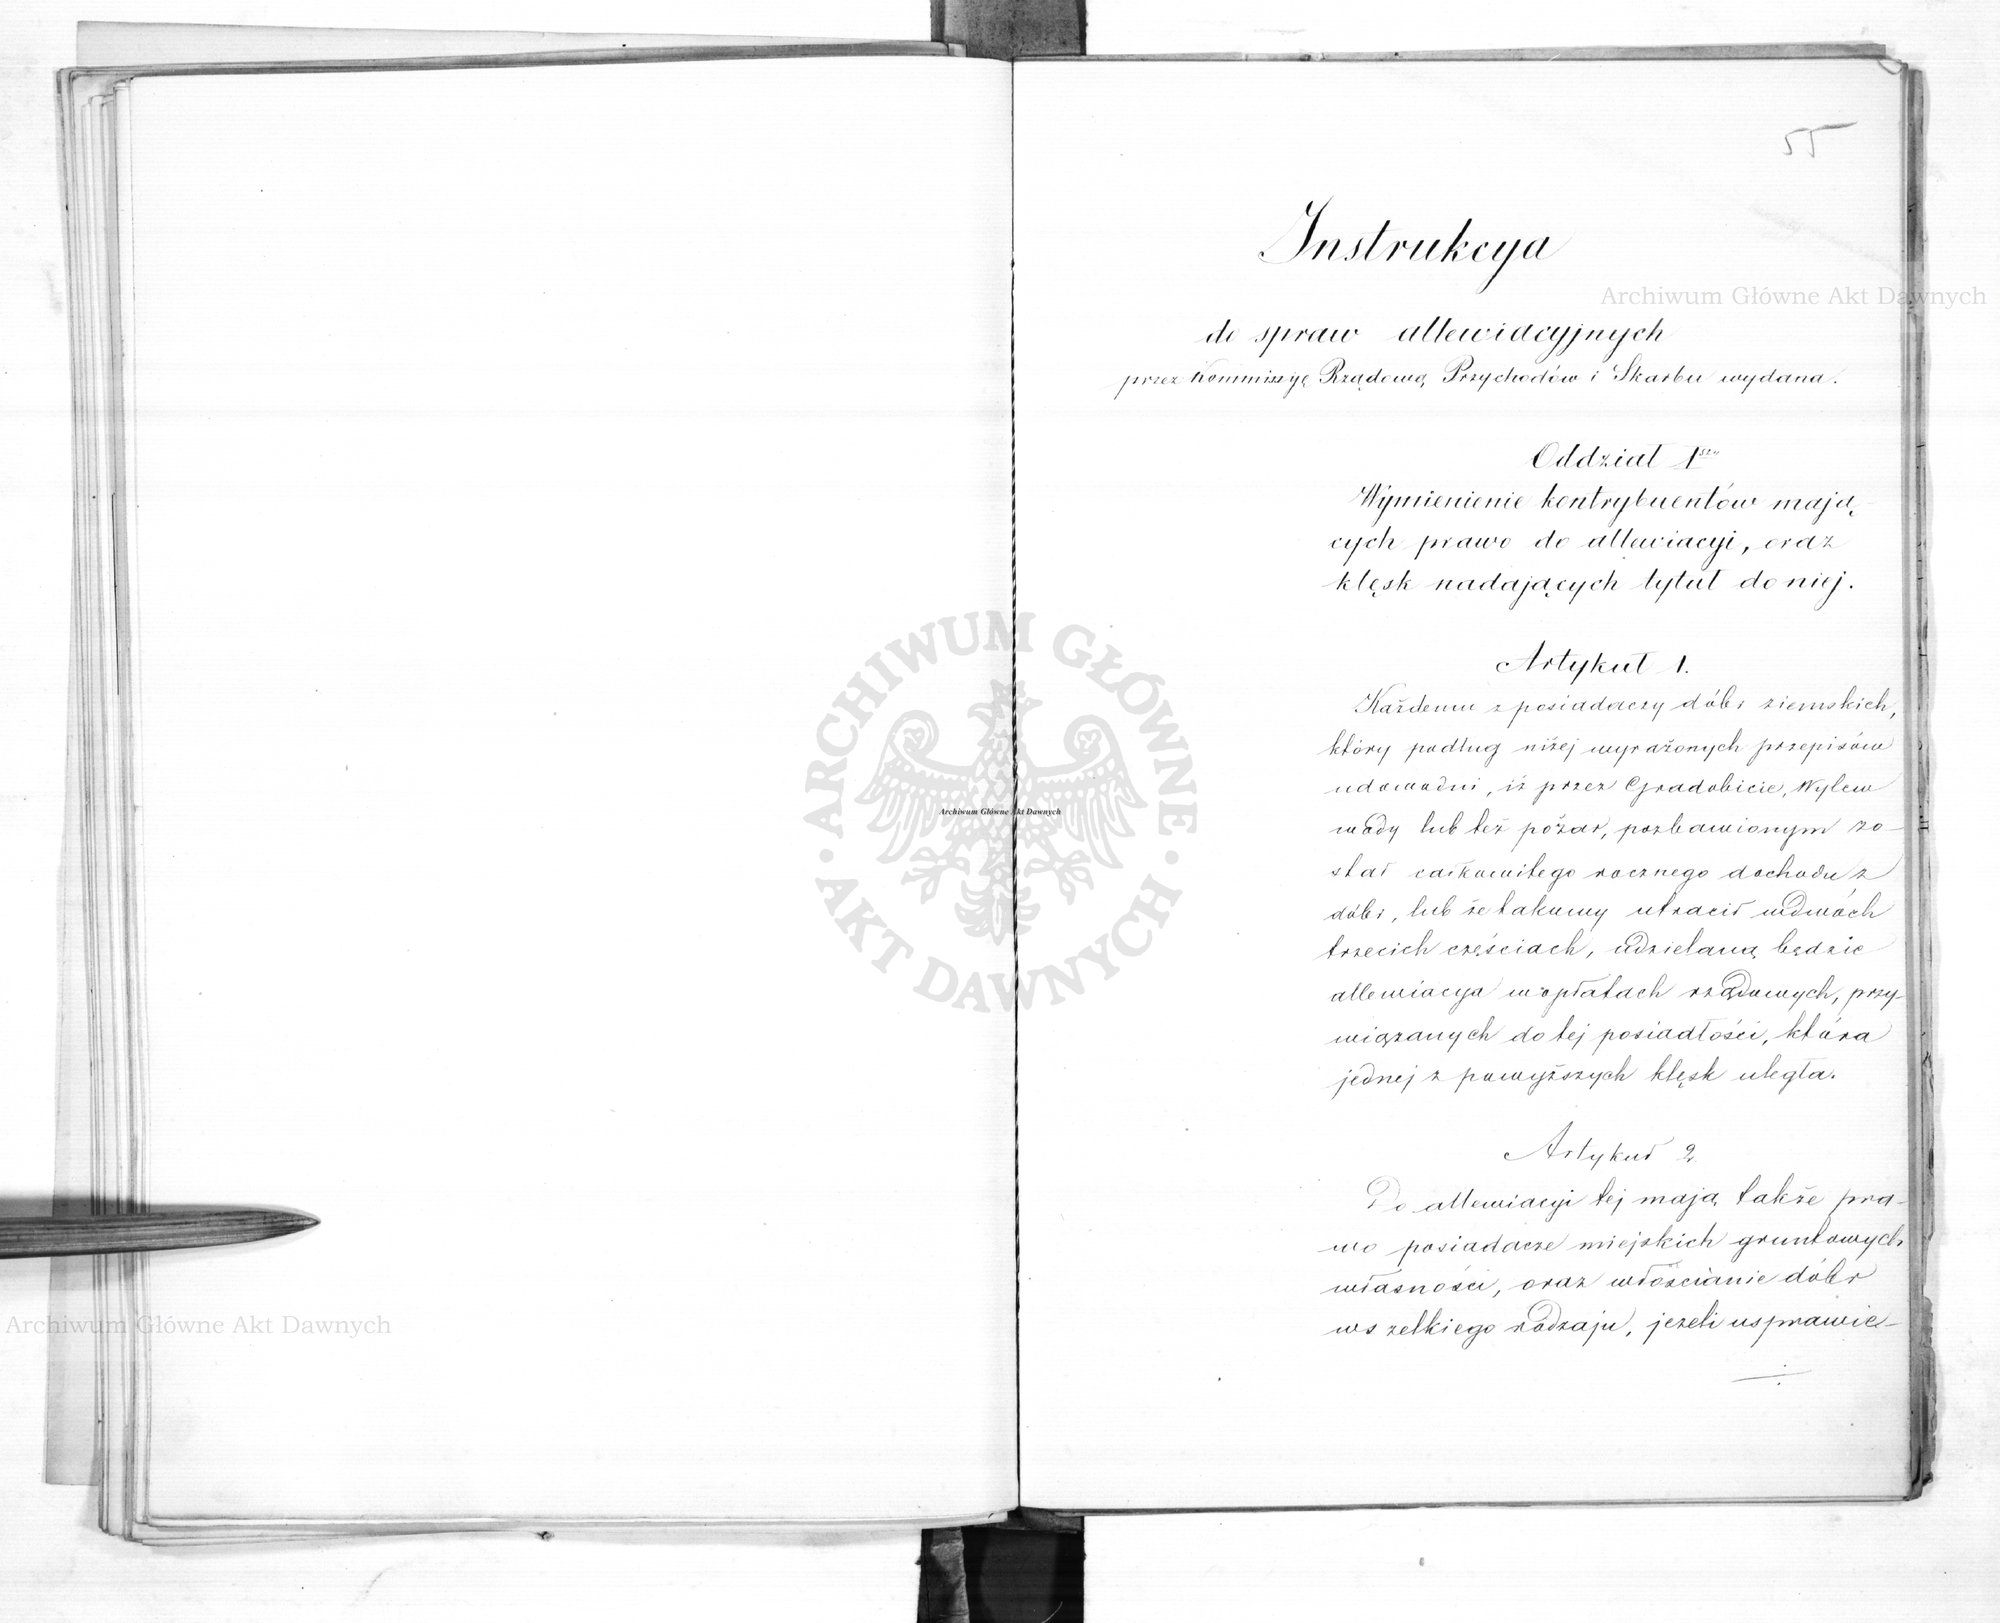 55
Instrukcya
do spraw allewiacyjnych
przez Kommissyę Rządową Przychodów i Skarbu wydana.
Oddział 1szy
Wymienienie kontrybuentów mają-
cych prawo do allewiacyi, oraz
klęsk nadających tytuł do niej.
Artykuł 1.
Każdemu z posiadaczy dóbr ziemskich,
który podług niżej wyrażonych przepisów
udowodni, iż przez Gradobicie, Wylew
wody lub też pożar, pozbawionym zo-
stał całkowitego rocznego dochodu z
dóbr, lub że takowy utracił w dwóch
trzecich częściach, udzielaną będzie
allewiacya w opłatach rządowych, przy-
wiązanych do tej posiadłości, która
jednej z powyższych klęsk uległa.
Artykuł 2.
Do allewiacyi tej mają także pra-
wo posiadacze miejskich gruntowych
własności, oraz włościanie dóbr
wszelkiego rodzaju, jeżeli usprawie-
Archiwum Główne Akt Dawnych
ARCHIWUM GŁÓWNE
AKT DAWNYCH
Archiwum Główne Akt Dawnych
Archiwum Główne Akt Dawnych